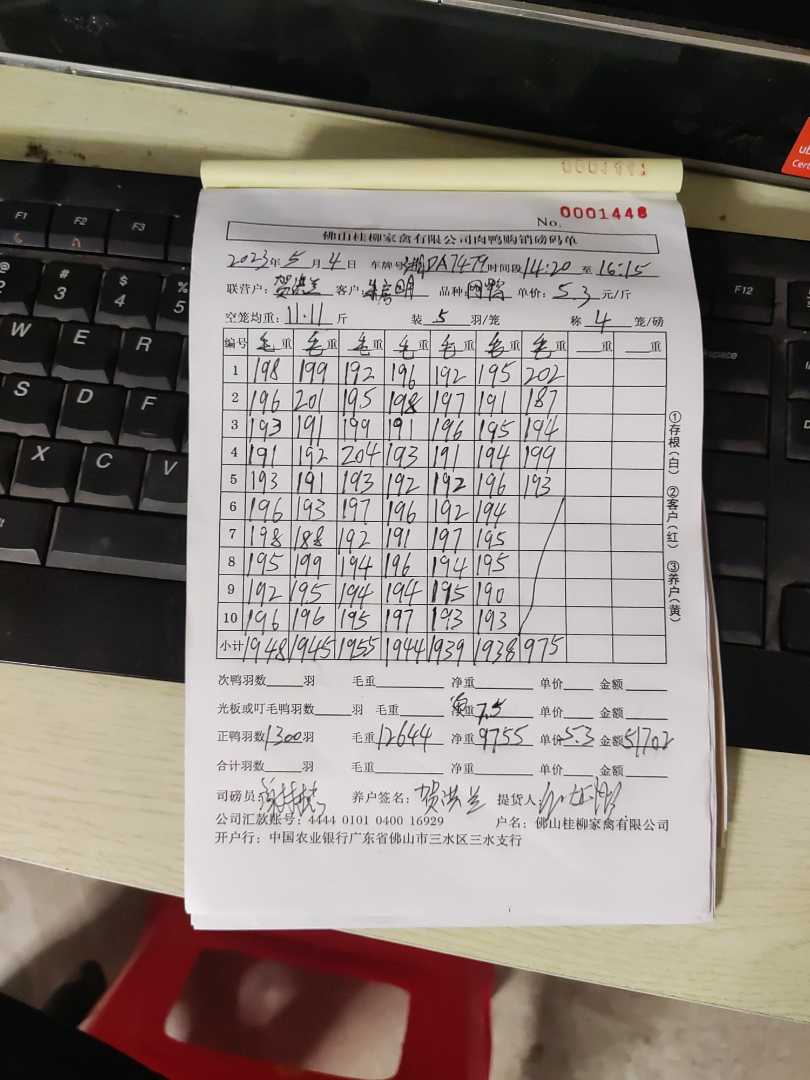 0001441
No. 0001448
佛山桂柳家禽有限公司肉鸭购销磅码单
2023年5月4日 车牌号:湘DA7479 时间段14:20至16:15
联营户:贺洪兰 客户: 明 品种:肉鸭 单价:5.3元/斤
空笼均重:11.11斤 装5羽/笼 称4笼/磅
编号 毛重 毛重 毛重 毛重 毛重 毛重 毛重 重 重
1 198 199 192 196 192 195 202
2 196 201 195 198 197 191 187
3 193 191 199 191 196 195 194
4 191 192 204 193 191 194 199
5 193 191 193 192 192 196 193
6 196 193 197 196 192 194
7 198 188 192 191 197 195
8 195 199 194 196 194 195
9 192 195 194 194 195 190
10 196 196 195 197 193 193
小计 1948 1945 1955 1944 1939 1938 975
①存根(白) ②客户(红) ③养户(黄)
次鸭羽数 羽 毛重 净重 单价 金额
光板或叮毛鸭羽数 羽 毛重 净重 7.5 单价 金额
正鸭羽数1300羽 毛重12644 净重9755 单价5.3 金额51702
合计羽数 羽 毛重 净重 单价 金额
司磅员: 养户签名:贺洪兰 提货人:
公司汇款账号:4444 0101 0400 16929 户名:佛山桂柳家禽有限公司
开户行:中国农业银行广东省佛山市三水区三水支行
F1
F2
F3
F12
@ 2
# 3
$ 4
% 5
W
E
R
S
D
F
X
C
V